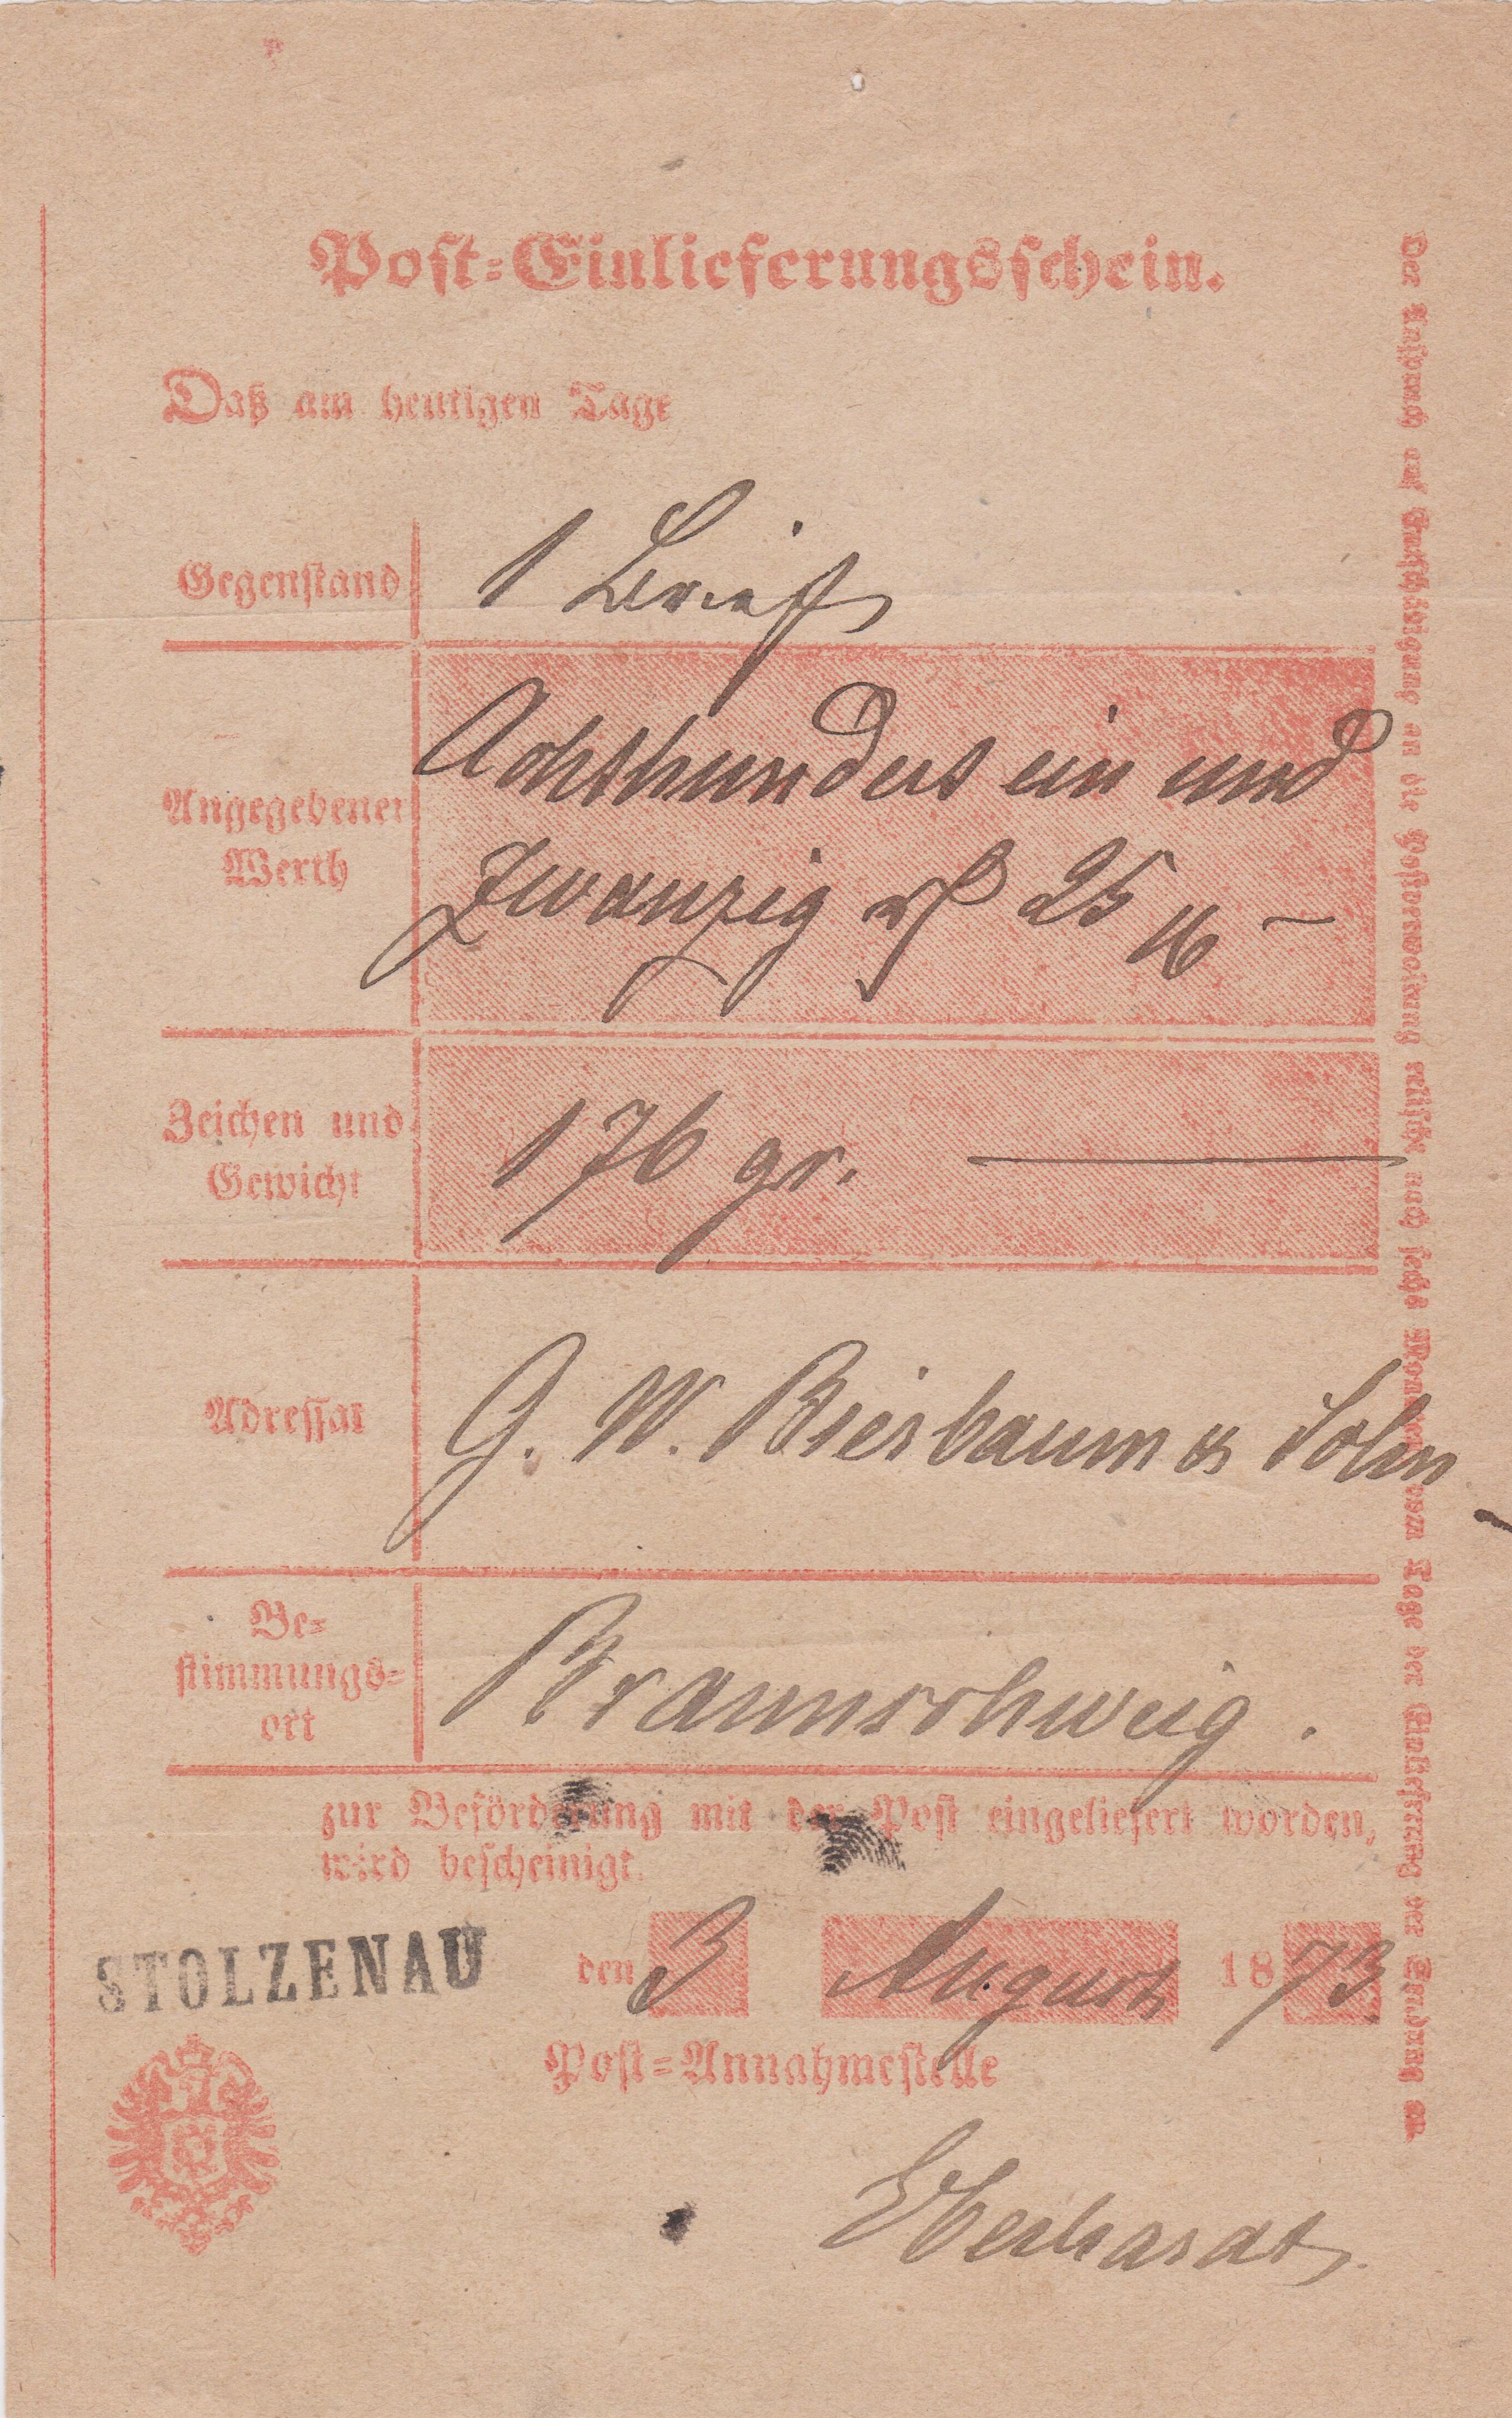 Post-Einlieferungsschein.
Daß am heutigen Tage
Gegenstand 1 Brief
Angegebener Werth Achthundert ein und
zwanzig 25
Zeichen und Gewicht 176 gr.
Adressat G. W. Bierbaum & Sohn
Be-
stimmungs-
ort Braunschweig.
zur Beförderung mit der Post eingeliefert worden,
wird bescheinigt.
STOLZENAU den 3 August 1873
Post-Annahmestelle
Eberhardt
Der Anspruch auf Entschädigung an die Postverwaltung erlischt nach sechs Monaten vom Tage der Einlieferung der Sendung an.